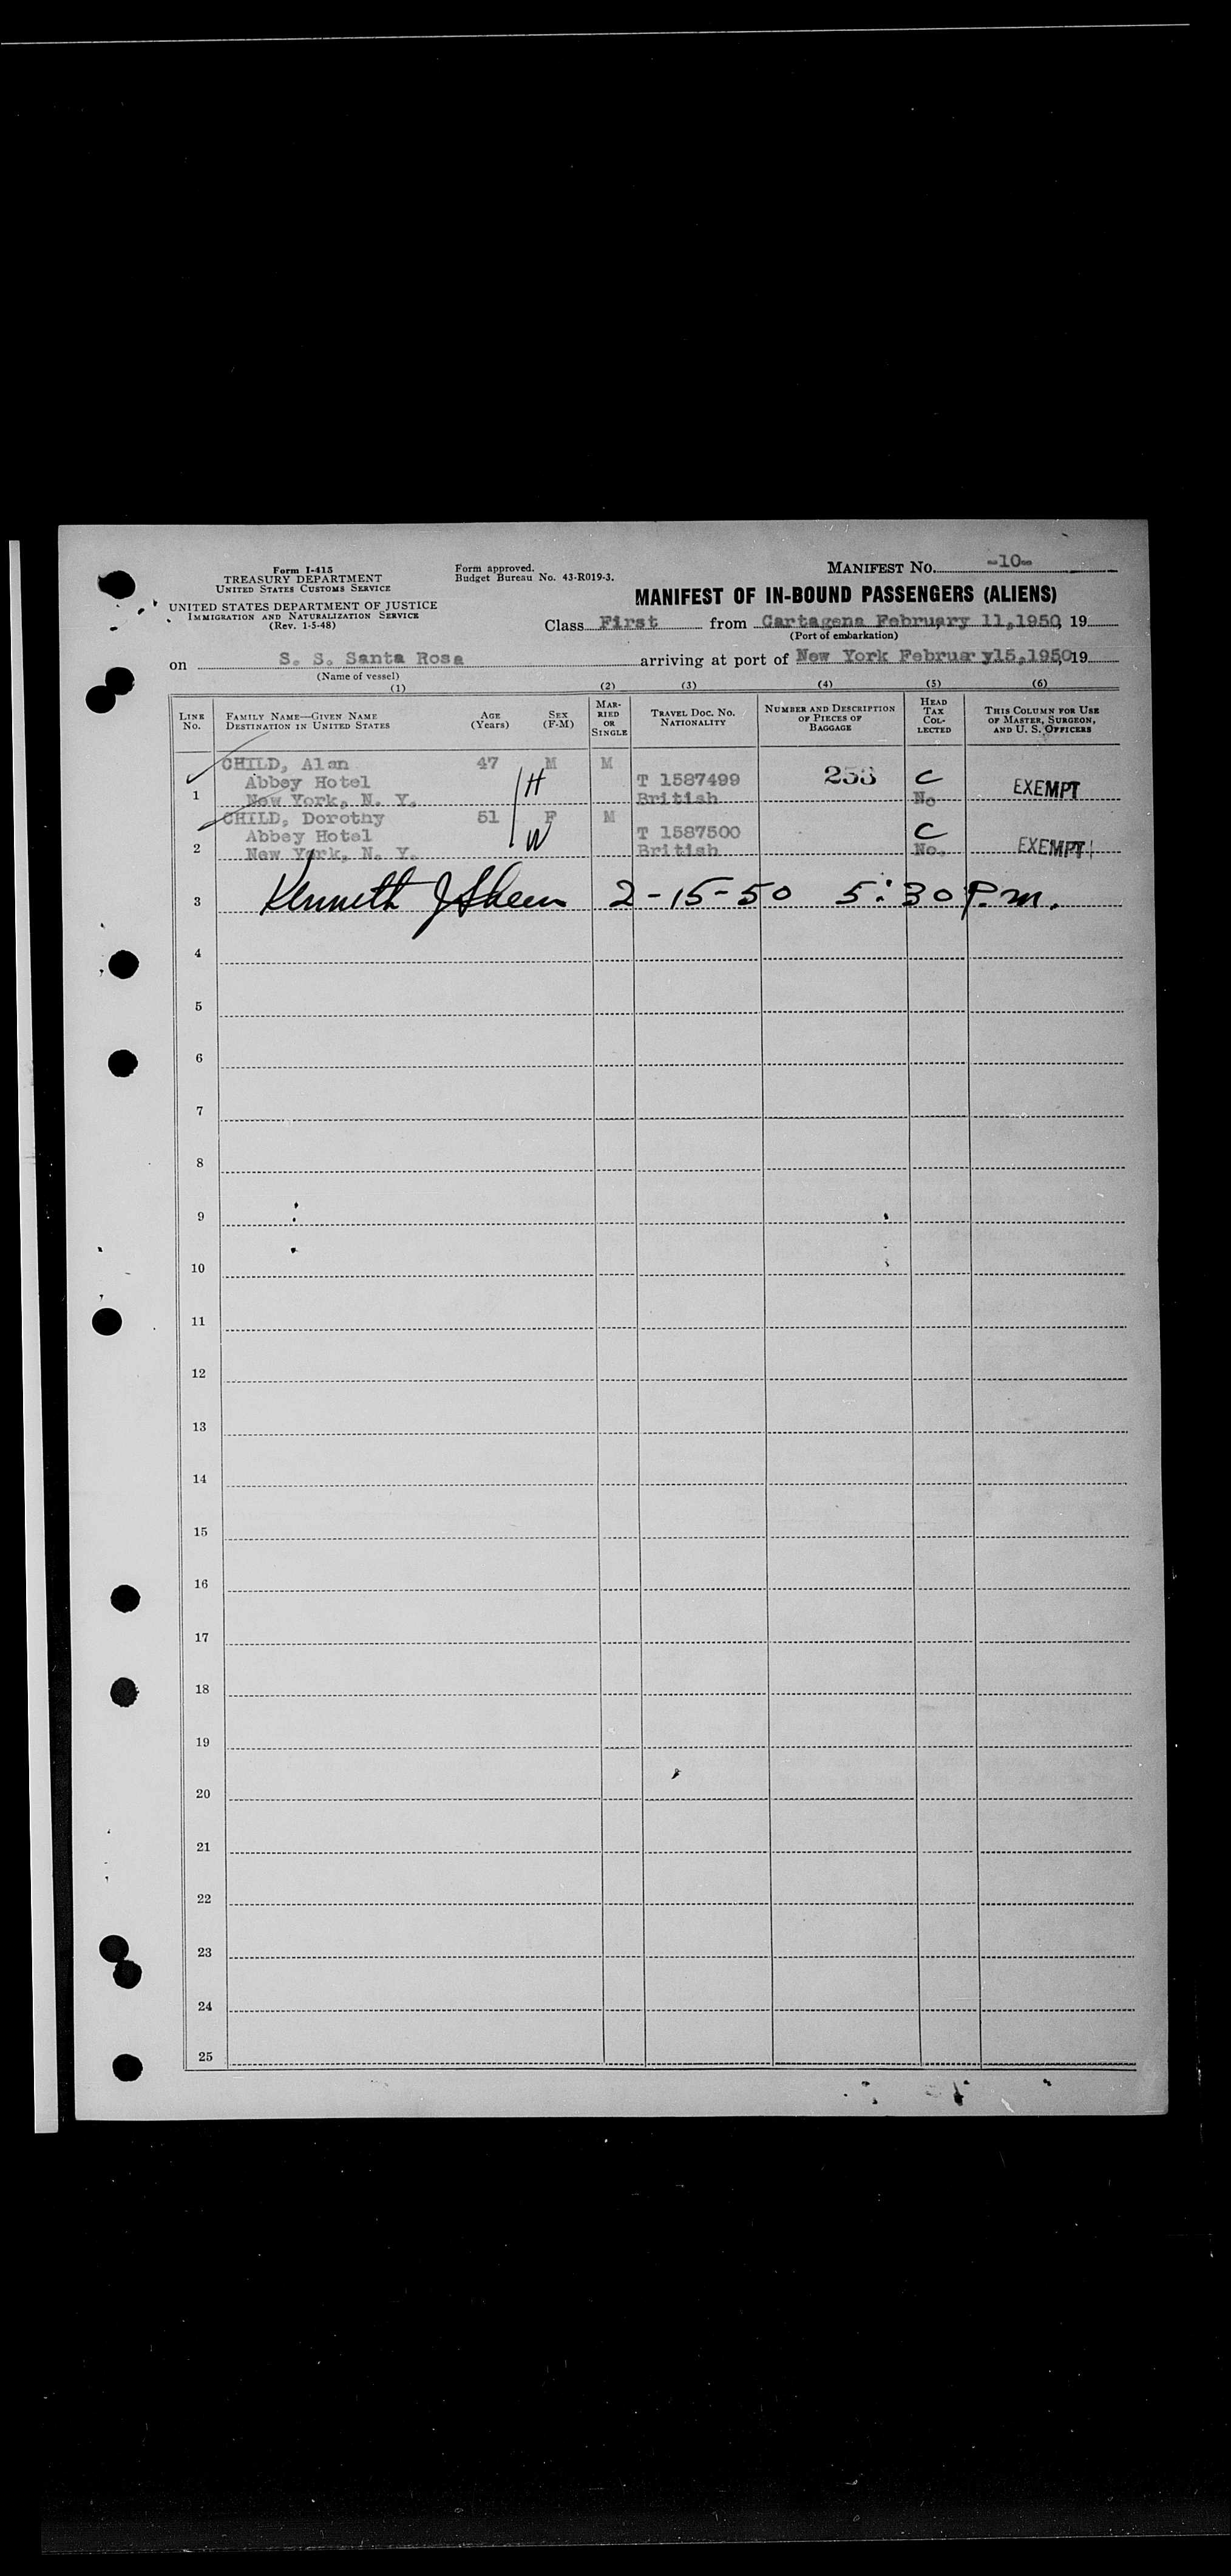 Form I-415
TREASURY DEPARTMENT
UNITED STATES CUSTOMS SERVICE
UNITED STATES DEPARTMENT OF JUSTICE
IMMIGRATION AND NATURALIZATION SERVICE
(Rev. 1-5-48)
Form approved.
Budget Bureau No. 43-R019-3.
MANIFEST No. -10-
MANIFEST OF IN-BOUND PASSENGERS (ALIENS)
Class First from Cartagena February 11,1950, 19
(Port of embarkation)
on S. S. Santa Rosa arriving at port of New York February15,1950, 19
(Name of vessel)
(1) (2) (3) (4) (5) (6)
LINE No. FAMILY NAME—GIVEN NAME DESTINATION IN UNITED STATES AGE (Years) SEX (F-M) MARRIED OR SINGLE TRAVEL DOC. No. NATIONALITY NUMBER AND DESCRIPTION OF PIECES OF BAGGAGE HEAD TAX COLLECTED THIS COLUMN FOR USE OF MASTER, SURGEON, AND U. S. OFFICERS
CHILD, Alan 47 M M
Abbey Hotel H T 1587499 C
1 New York, N. Y. British No EXEMPT
CHILD, Dorothy 51 F M
Abbey Hotel W T 1587500 C
2 New York, N. Y. British No. EXEMPT
3 Kenneth J 2-15-50 5:30 P.m.
4
5
6
7
8
9
10
11
12
13
14
15
16
17
18
19
20
21
22
23
24
25